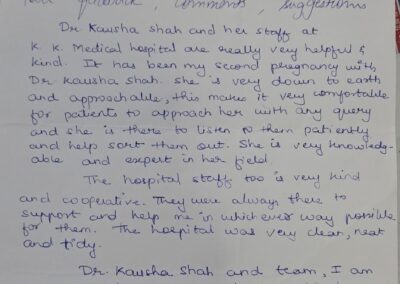 feedback, comments, suggestions
Dr. Kausha Shah and her staff at
K. K. Medical hospital are really very helpful &
kind. It has been my second pregnancy with
Dr. Kausha Shah. She is very down to earth
and approachable, this makes it very comfortable
for patients to approach her with any query
and she is there to listen to them patiently
and help sort them out. She is very knowledg-
able and expert in her field.
The hospital staff too is very kind
and cooperative. They were always there to
support and help me in whichever way possible
for them. The hospital was very clean, neat
and tidy.
Dr. Kausha Shah and team, I am